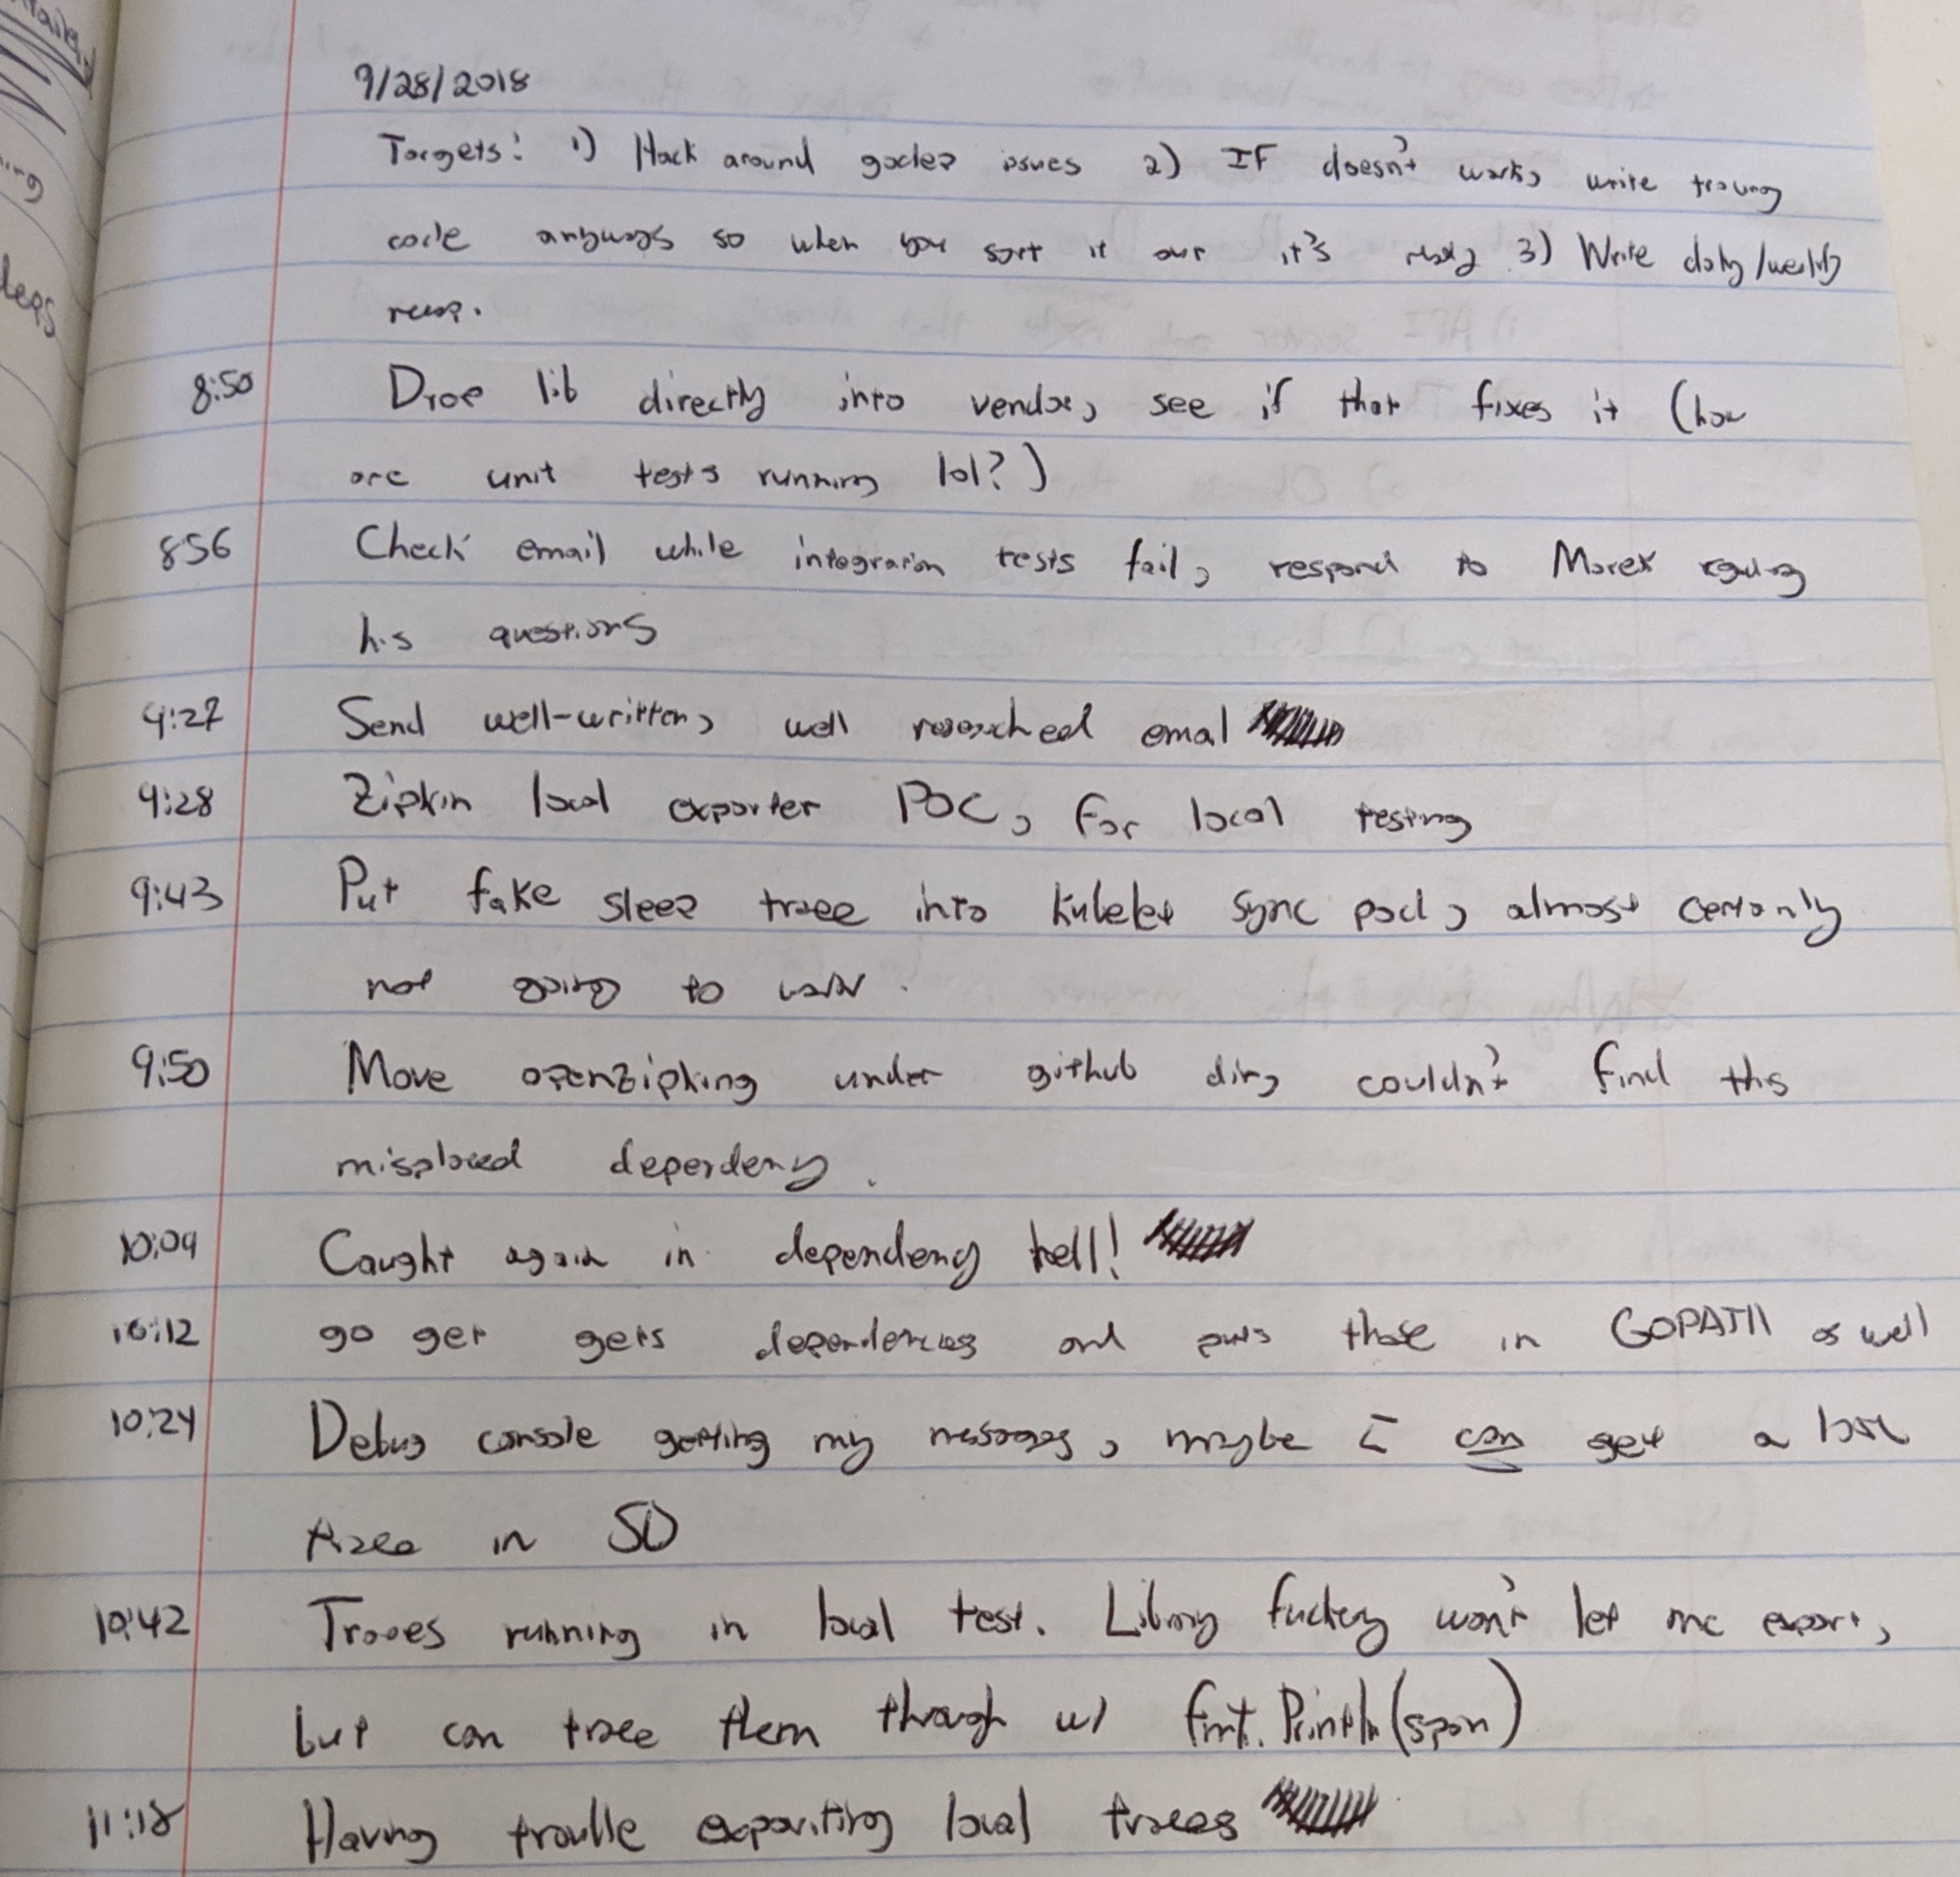 9/28/2018
Targets: 1) Hack around godep issues 2) IF doesn't work, write tracing
code anyways so when you sort it out it's ready 3) Write daily/weekly
recap.
8:50 Drop lib directly into vendor, see if that fixes it (how
are unit tests running lol?)
856 Check email while integration tests fail, respond to Marek regarding
his questions
9:27 Send well-written, well researched email
9:28 Zipkin local exporter POC, for local testing
9:43 Put fake sleep trace into kubelet sync pod, almost certainly
not going to work.
9:50 Move openzipking under github dir, couldn't find this
misplaced dependency.
10:09 Caught again in dependency hell!
10:12 go get gets dependencies and puts those in GOPATH as well
10:24 Debug console getting my messages, maybe I can get a
trace in SD
10:42 Traces running in local test. Library fuckery won't let me export,
but can trace them through w/ fmt.Println(span)
11:18 Having trouble exporiting local traces